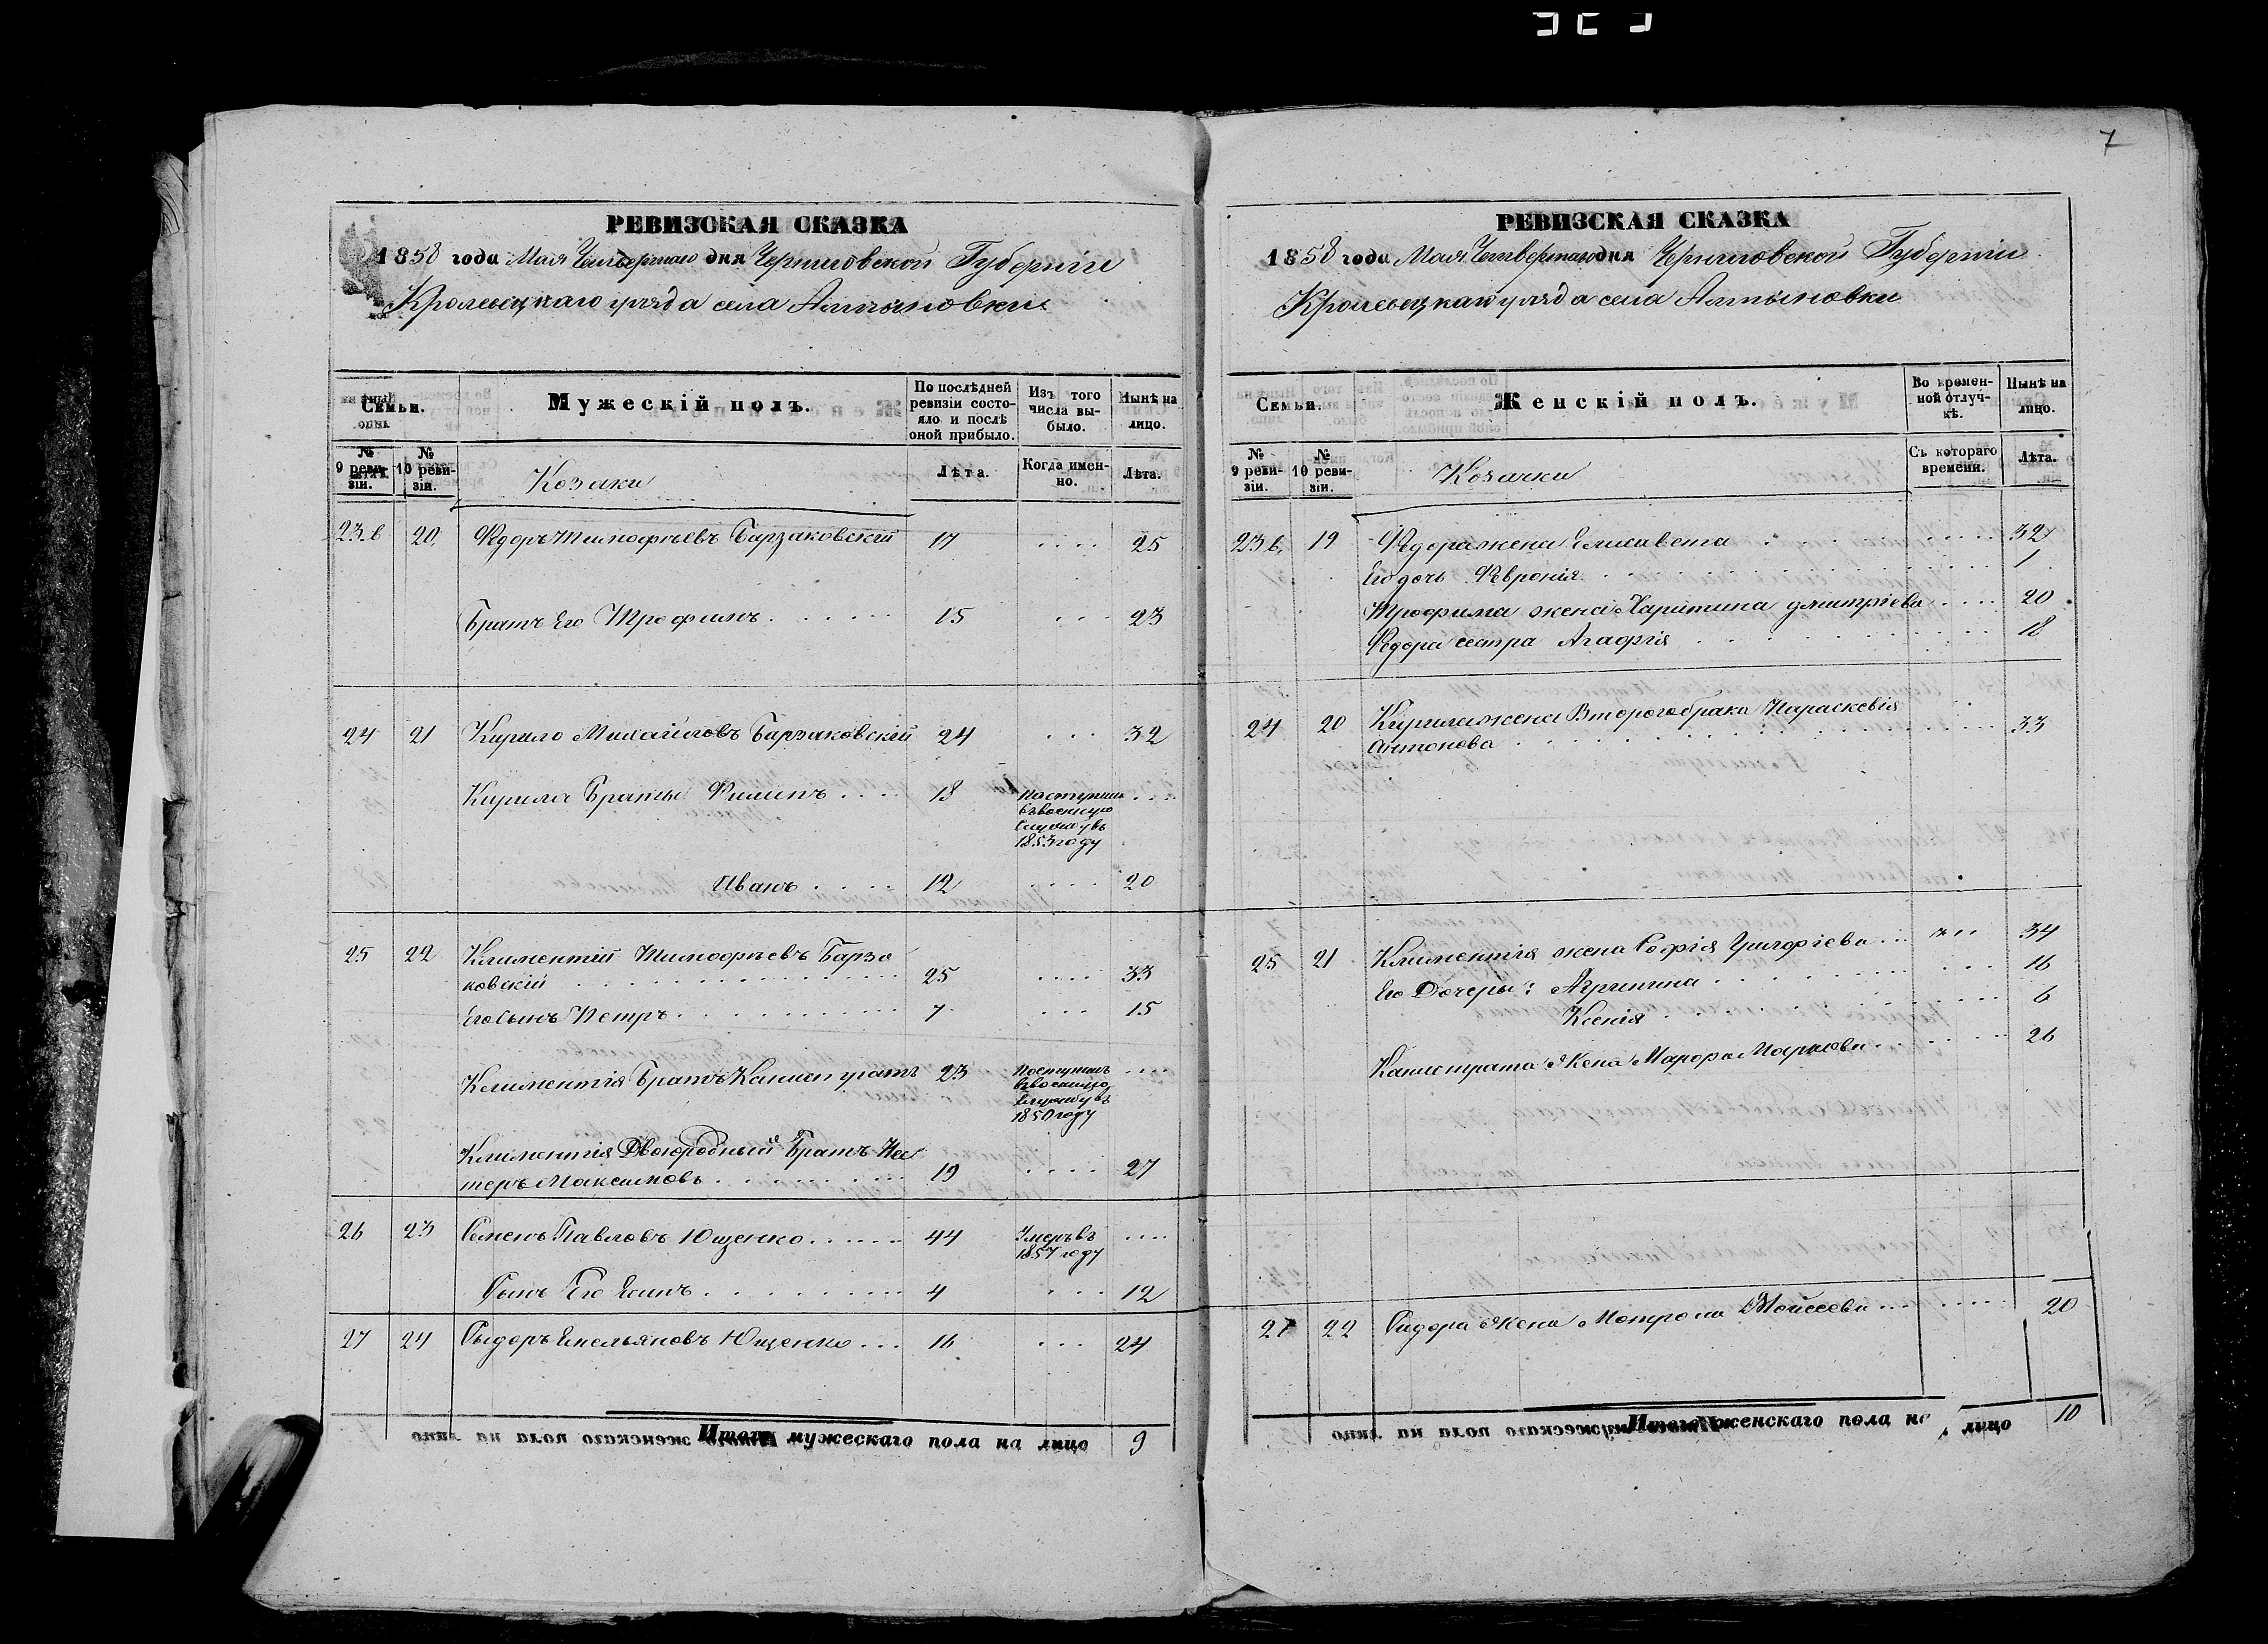 7
РЕВИЗСКАЯ СКАЗКА
1858 года Мая Четвертаго дня Черниговской Губерніи
Кролевецкаго уѣзда села Алтыновки
Семьи.
Мужескій полъ.
По послѣдней ревизіи состояло и послѣ оной прибыло.
Изъ того числа выбыло.
Нынѣ на лицо.
№ 9 ревизіи.
№ 10 ревизіи.
Козаки
Лѣта.
Когда именно.
Лѣта.
23.в 20 Федоръ Тимофѣевъ Барзаковскій 17 .... 25
Братъ Его Трофимъ 15 ... 23
24 21 Кирило Михайловъ Барзаковскій 24 ... 32
Кирила Братья Филипъ .... 18 поступилъ ....
въ военную
службу въ
1853 году
Иванъ .... 12 .... 20
25 22 Климентій Тимофѣевъ Барза
ковскій 25 .... 33
Его Сынъ Петръ 7 ... 15
Климентія Братъ Калистратъ 23 Поступилъ ....
въ военную
службу въ
1850 году
Климентія Двоюродный Братъ Не
теръ Максимовъ 19 .... 27
26 23 Семенъ Павловъ Ющенко 44 Умеръ въ ....
1857 году
Сынъ Его Екимъ 4 ... 12
27 24 Сыдоръ Емельяновъ Ющенко ... 16 ... 24
Итого мужескаго пола на лицо 9
РЕВИЗСКАЯ СКАЗКА
1858 года Мая Четвертаго дня Черниговской Губерніи
Кролевецкаго уѣзда села Алтыновки
Семьи.
Женскій полъ.
Во временной отлучкѣ.
Нынѣ на лицо.
№ 9 ревизіи.
№ 10 ревизіи.
Козачки
Съ котораго времени.
Лѣта.
23 в. 19 Федора жена Елисавета 32
Его дочь Февронія 1
Трофима жена Харитина Дмитріева .... 20
Федора сестра Агафія 18
24 20 Кирила жена Второго брака Параскевія
Антонова 33
25 21 Климентія жена Софія Григоріева 34
Его Дочеры: Агрипина 16
Ксенія 6
Калистрата Жена Марфа Маркова 26
27 22 Сидора Жена Мотрона Моисеева 20
Итого женскаго пола на лицо 10